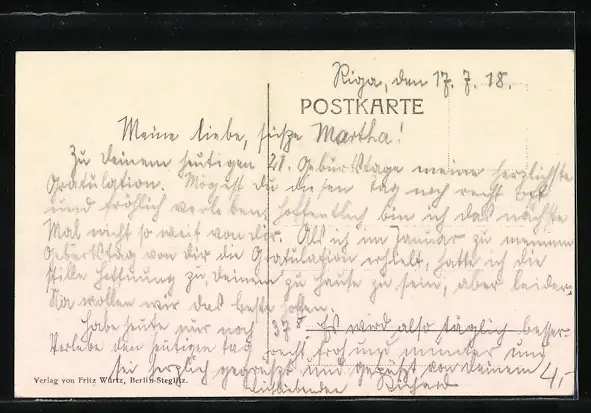 Riga, den 17. 7. 18.
POSTKARTE
Meine liebe, süsse Martha!
Zu deinem heutigen 21. Geburtstage meine herzlichste
Gratulation. Mögest du diesen Tag noch recht oft
und fröhlich verleben, hoffentlich bin ich das nächste
Mal nicht so weit von dir. Als ich im Januar zu meinem
Geburtstag von dir die Gratulation erhielt, hatte ich die
stille Hoffnung zu deinem zu Hause zu sein, aber leider.
Na wollen wir das beste hoffen.
Habe heute nur noch 37,8. Es wird also täglich besser.
Verlebe den heutigen Tag recht froh und munter und
sei herzlich gegrüsst und geküsst von deinem
dichliebenden Richard
4,-
Verlag von Fritz Würtz, Berlin-Steglitz.